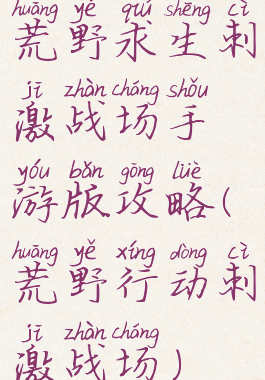 huāng yě qiú shēng cì
荒野求生刺
jī zhàn chǎng shǒu
激战场手
yóu bǎn gōng lüè
游版攻略(
huāng yě xíng dòng cì
荒野行动刺
jī zhàn chǎng
激战场)